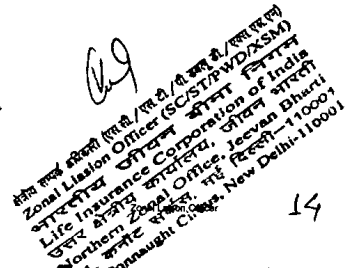 क्षेत्रीय सम्पर्क अधिकारी (एस.सी./एस.टी./पी.डब्ल्यू.डी./एक्स.एस.एम)
Zonal Liasion Officer (SC/ST/PWD/XSM)
भारतीय जीवन बीमा निगम
Life Insurance Corporation of India
उत्तर क्षेत्रीय कार्यालय, जीवन भारती
Northern Zonal Office, Jeevan Bharti
कनॉट सर्कस, नई दिल्ली-110001
Connaught Circus, New Delhi-110001
Zonal Liasion Officer
14